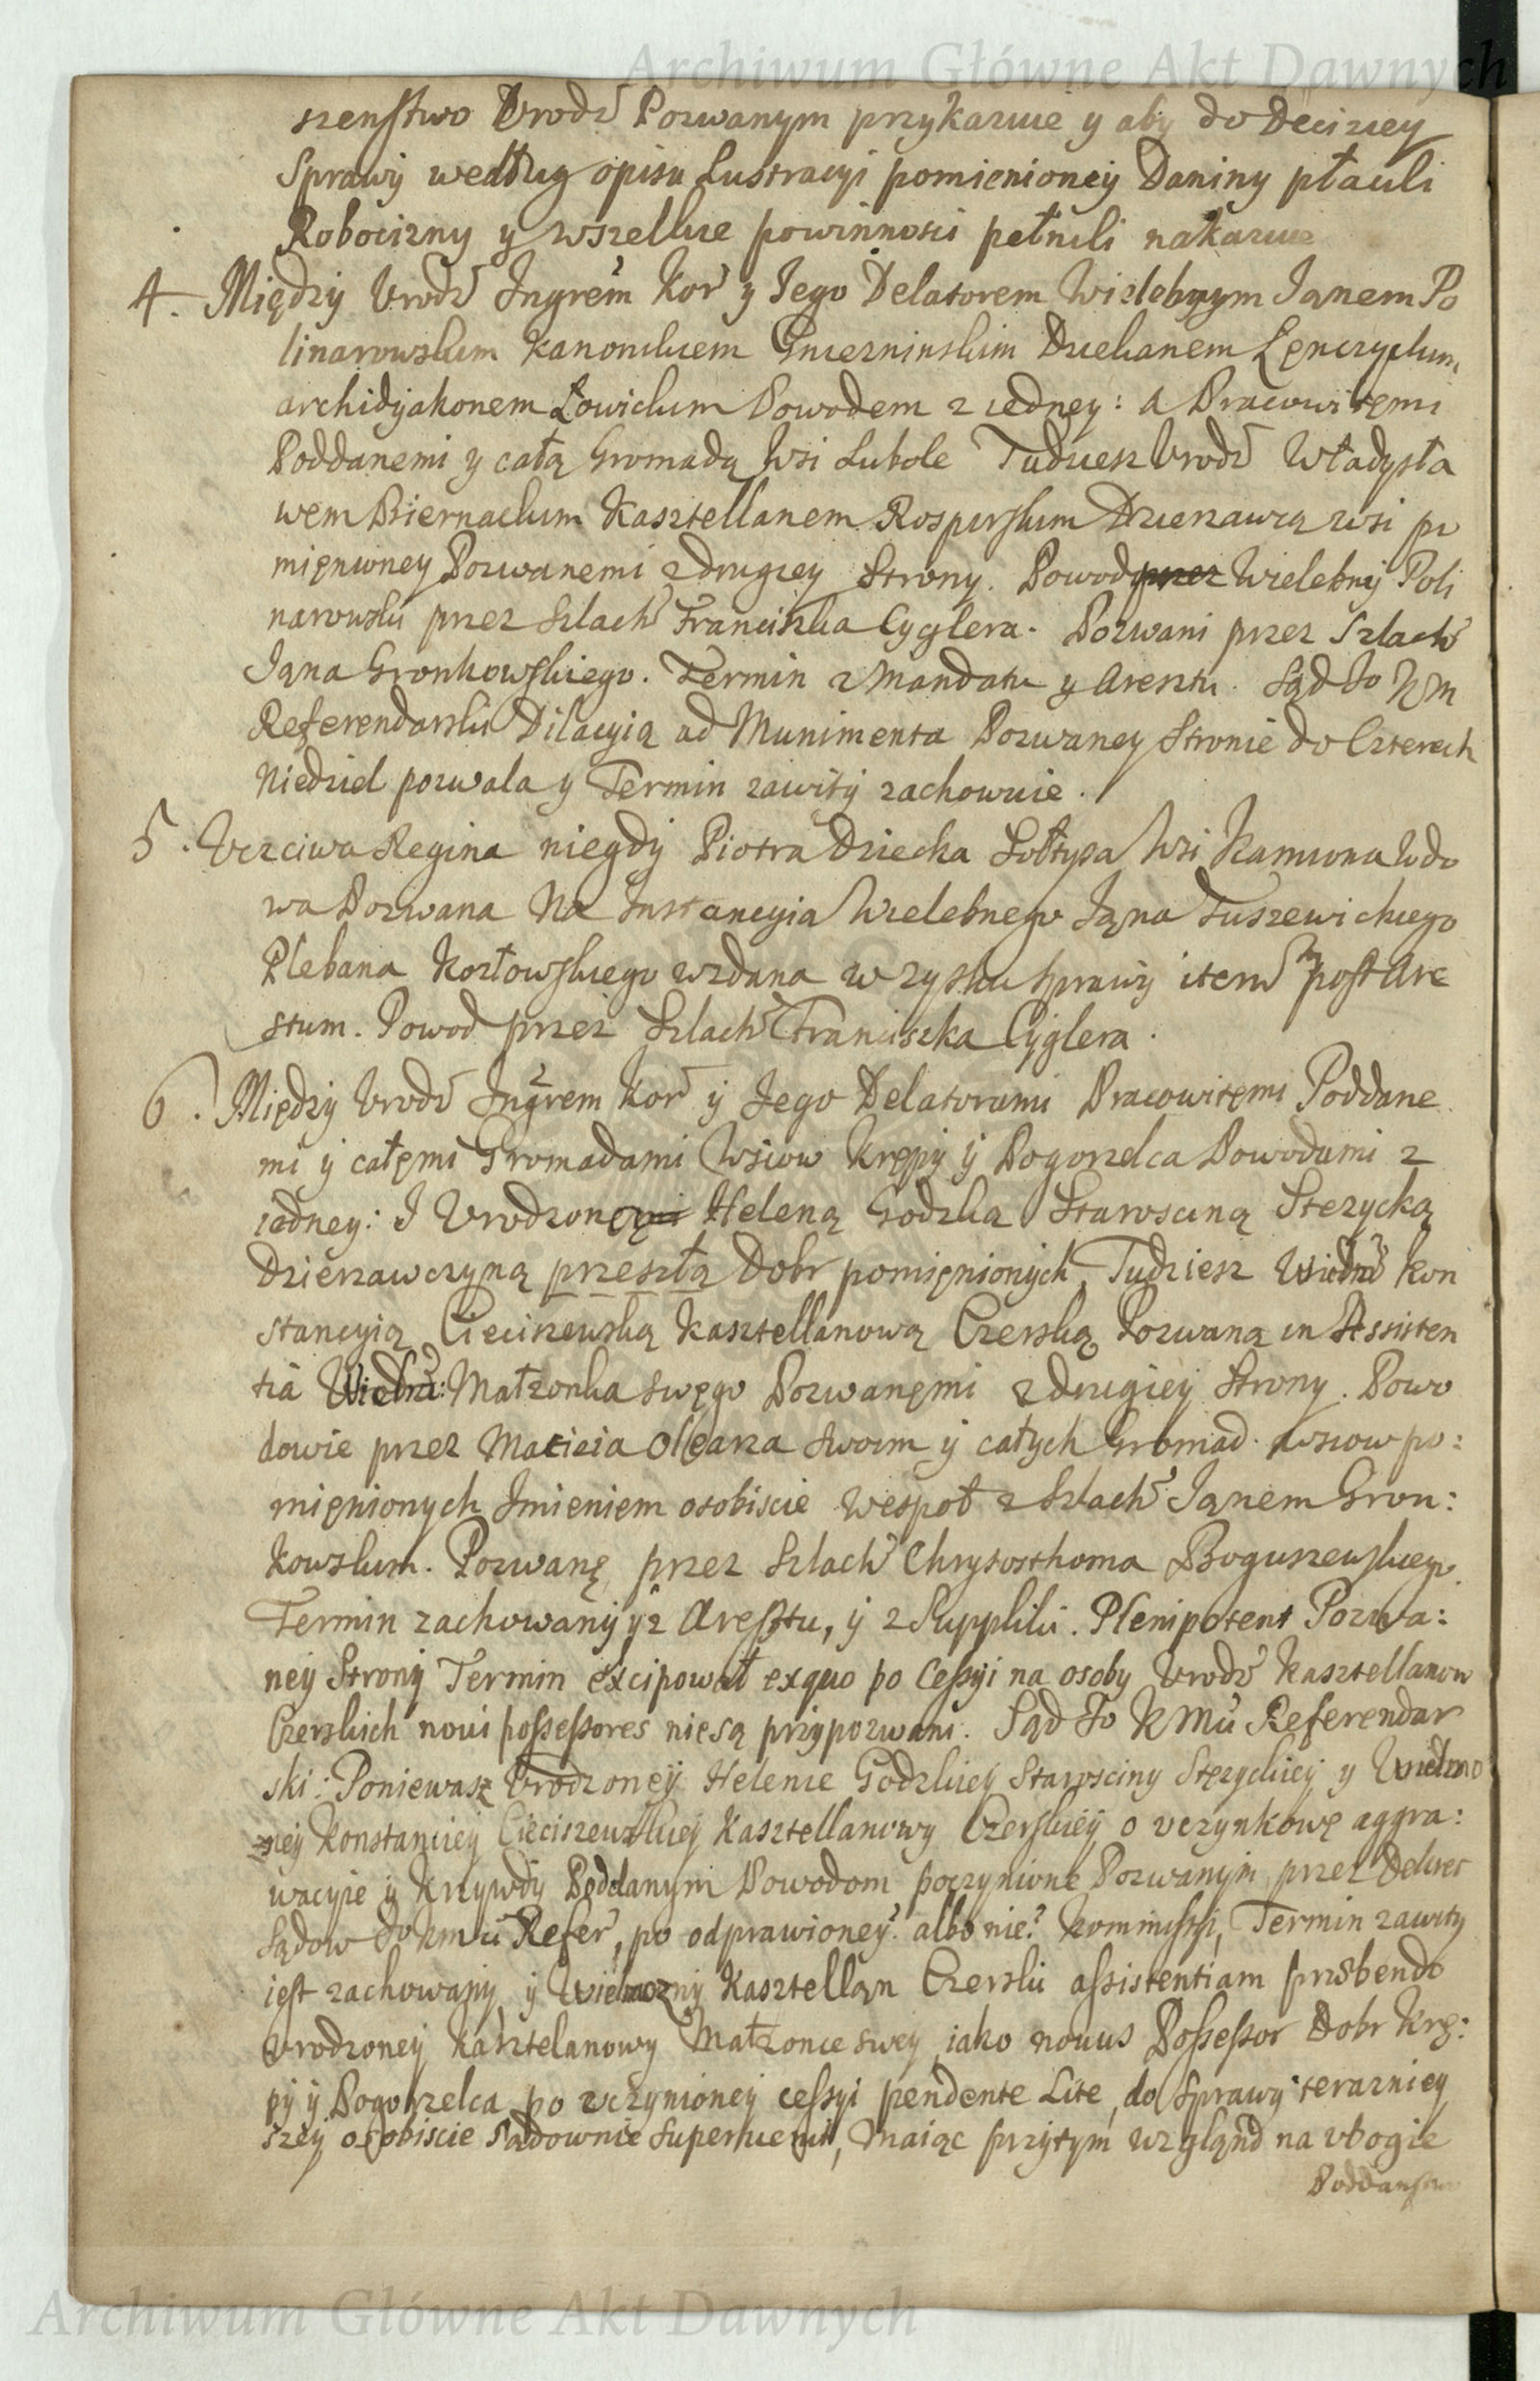 Archiwum Główne Akt Dawnych
szenstwo Vrodz Pozwanym przykazuie y aby do Deciziey
Sprawÿ według opisu Lustracyi pomienioney Daniny płacili
Robocizny y wszelkie powinnosci pełnili nakazuie
4. Międzÿ Vrodz Ingrem Kor y Jego Delatorem Wielebnym Ianem Po
linarowskim Kanonikiem Gnieznienskim Dziekanem Lenczyckim
archidÿakonem Łowickim Powodem z iedney: a Pracowitemi
Poddanemi y całą Gromadą Wsi Lutole Tudziesz Vrodz Władysła
wem Biernackim Kasztellanem Rosperskim Dzierzawcą wsi po
mięnioney Pozwanemi z drugiey Strony. Powod Wielebnÿ Poli
narowski przez Szlach Franciszka Cyglera. Pozwani przez Szlach
Iana Gronkowskiego. Termin z Mandatu y Aresztu. Sąd Jo KM
Referendarski Dilacyią ad Munimenta Pozwaney Stronie do Czterech
Niedziel pozwala y Termin zawitÿ zachowuie.
5. Vczciwa Regina niegdÿ Piotra Dziecka Sołtysa Wsi Kamiona Wdo
wa Pozwana Na Instancyia Wielebnego Iana Tuszewickiego
Plebana Kozłowskiego wzdana w zysku Sprawÿ item post Are
stum. Powod przez Szlach Franciszka Cÿglera.
6. Międzÿ Vrodz Ingrem Kor ÿ Jego Delatorami Pracowitemi Poddane
mi ÿ całemi Gromadami Wsiow Krępÿ ÿ Pogorzelca Powodami z
iedney: I Vrodzoną Heleną Godzką Starosciną Stezycką
Dzierzawczyną przeszłą Dobr pomięnionych, Tudziesz Wielmo Kon
stancyią Cieciszewską Kasztellanową Czerską Pozwaną in Assisten
tia Wielmo: Małzonka swego Pozwanemi z drugiey Strony. Powo
dowie przez Macieia Olearza swoim ÿ całych Gromad wsiow po:
mięnionych Imieniem osobiscie wespoł z Szlach Ianem Gron:
kowskim. Pozwane przez Szlach Chrysosthoma Boguszewskiego
Termin zachowanÿ ÿ z Aresztu, ÿ z Suppliki. Plenipotent Pozwa:
neÿ Stronÿ Termin excipował exquo po Cessyi na osoby Vrodz Kasztellanow
Czerskich noui possessores niesą przypozwani. Sąd Jo K Mci Referendar
ski: Poniewasz Vrodzoneÿ Helenie Godzkiey Starosciny Stęzyckiey y Wielmo
zneÿ Konstanciey Cieciszewskieÿ Kasztellanowy Czerskieÿ o vczynkowe aggra:
wacyie ÿ Krzywdÿ Poddanym Powodom poczynione Pozwanym przez Dekret
Sądow Jo Kmci Refer, po odprawioneÿ? albo nie? Kommissyi, Termin zawitÿ
iest zachowanÿ ÿ Wielmoznÿ Kasztellan Czerski assistentiam przbendo
Vrodzoneÿ Kasztelanowy Małzonce swey iako nouus Possessor Dobr Krę:
pÿ ÿ Pogorzelca po vczynioneÿ cessyi pendente Lite, do Sprawÿ terazniey
szeÿ osobiscie Sądownie Superuenit, Maiąc przÿtÿm wzgląnd na vbogie
Poddanstwo
Archiwum Główne Akt Dawnych